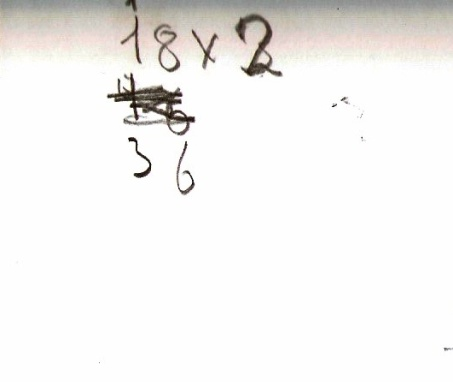 18 x 2
36